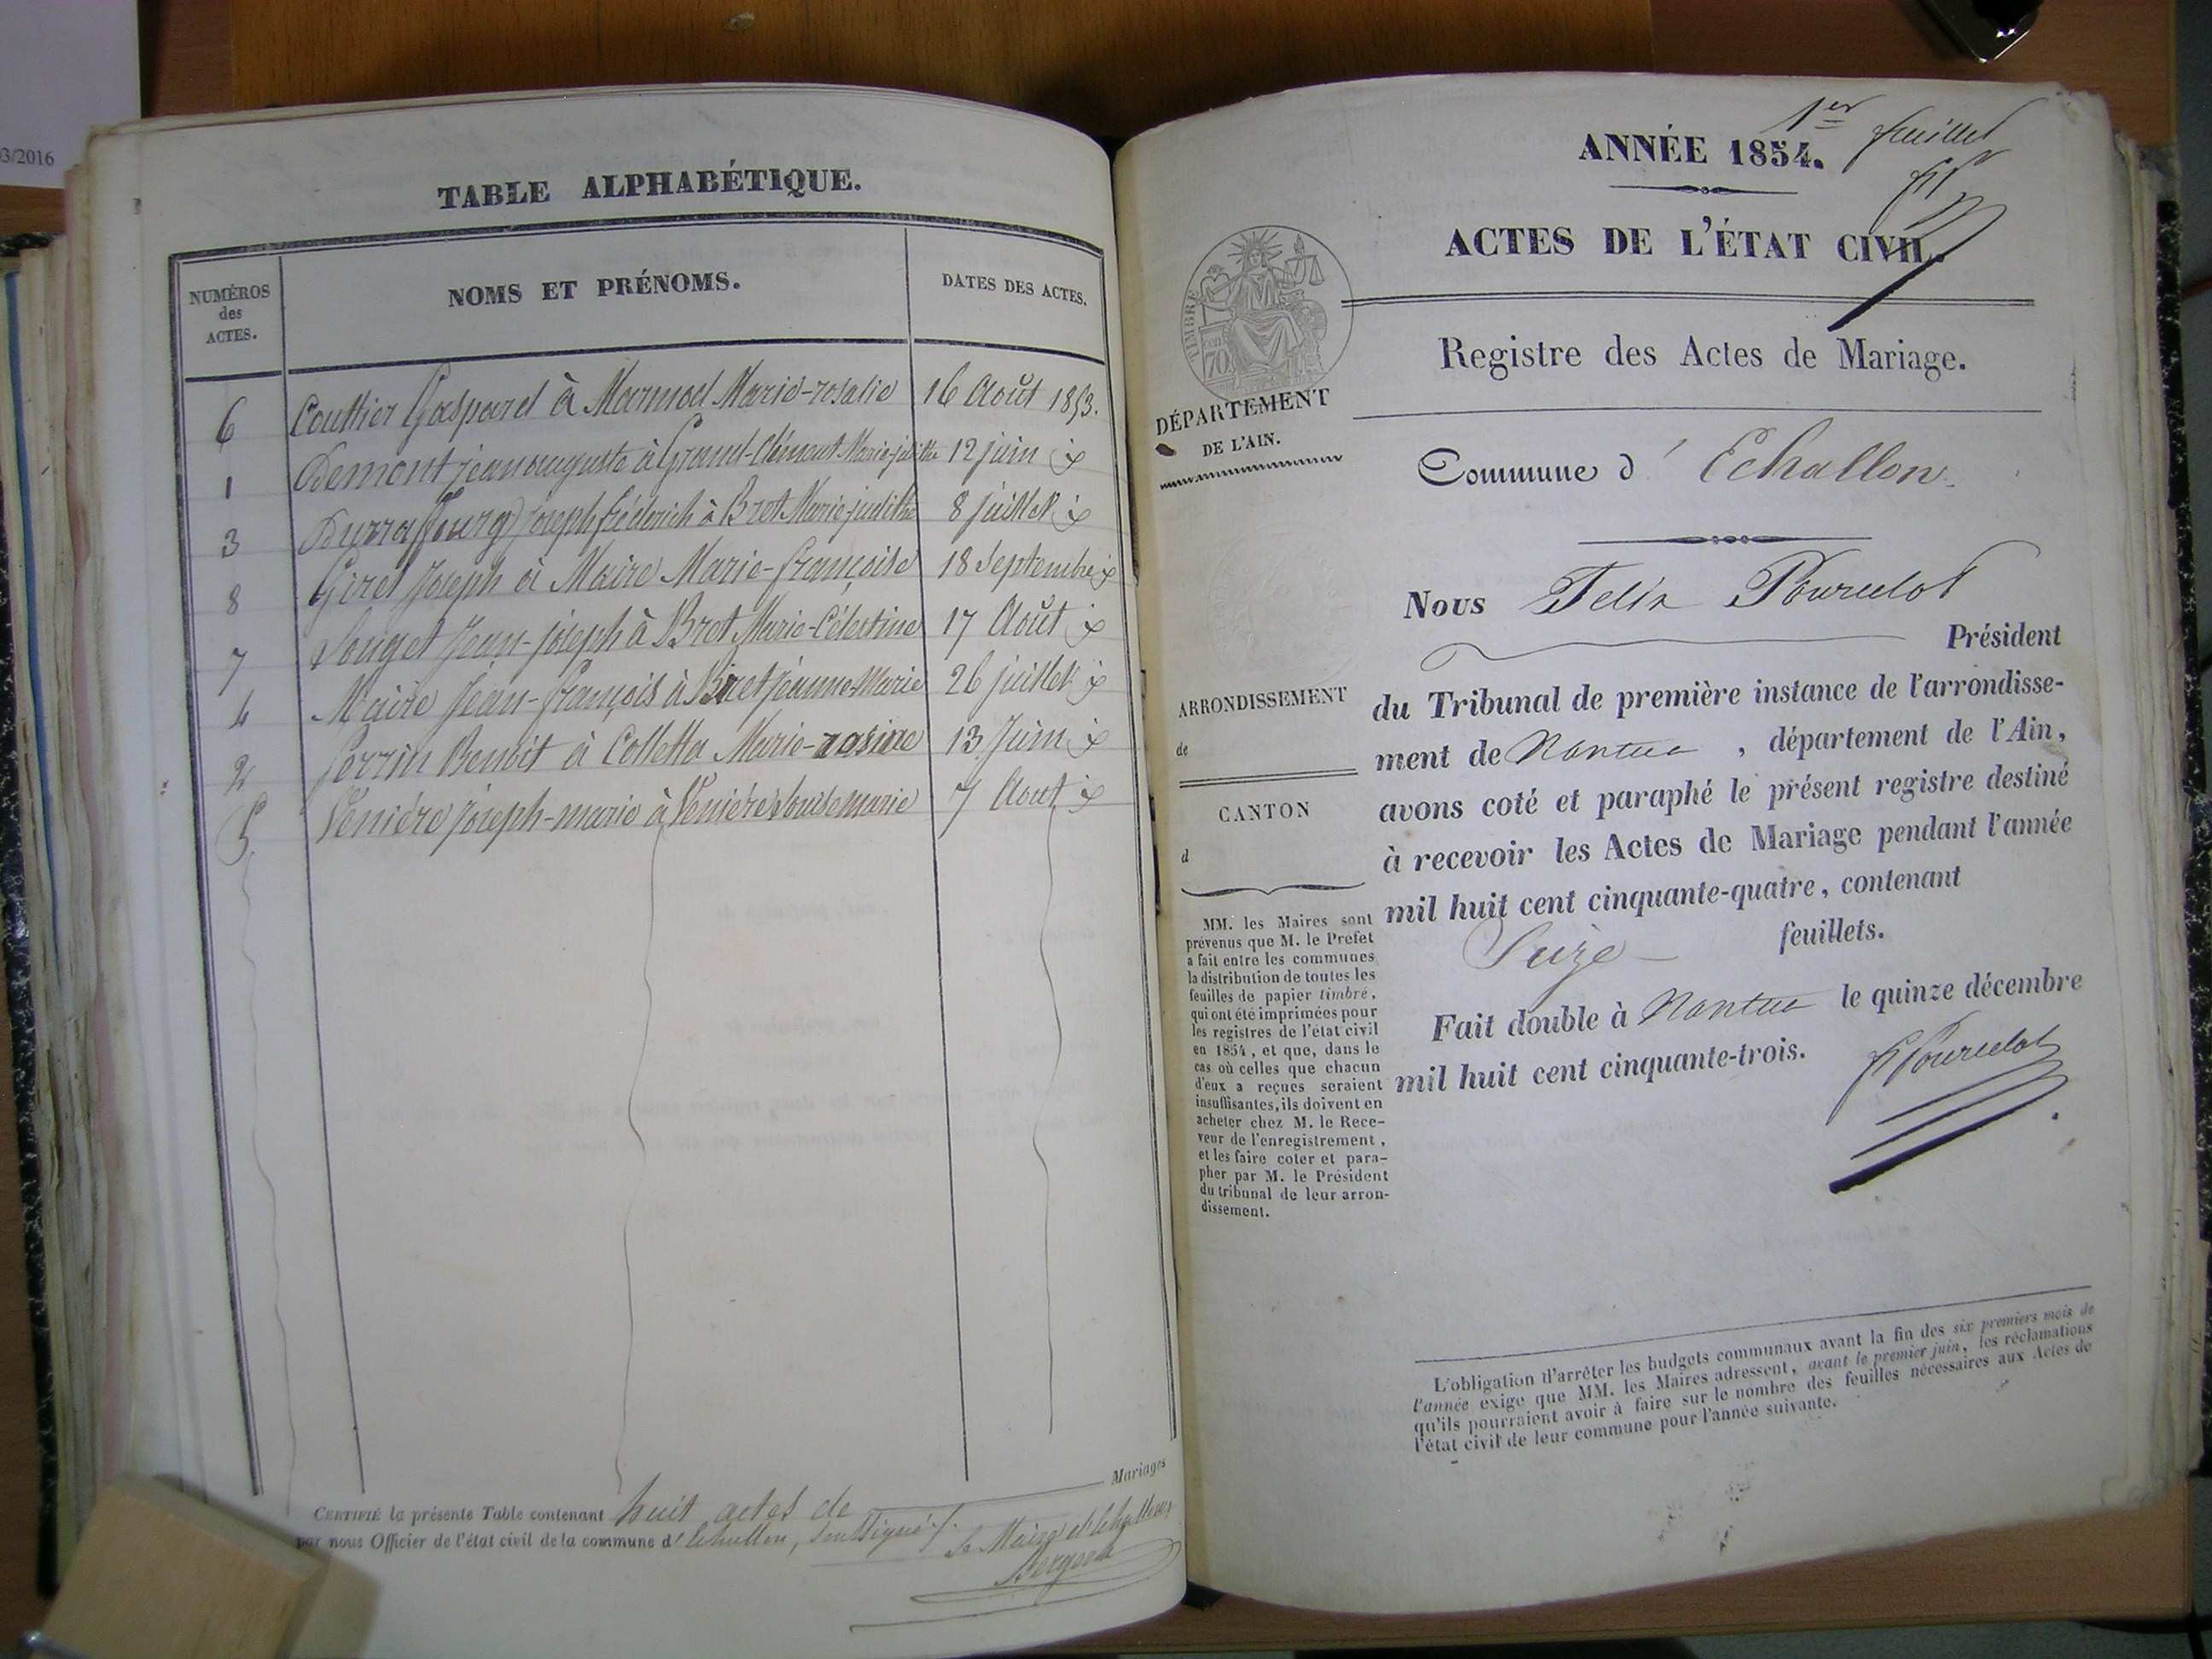 03/2016
TABLE ALPHABÉTIQUE.
NUMÉROS des ACTES.
NOMS ET PRÉNOMS.
DATES DES ACTES.
6 Couttier Gaspard à Marmod Marie-rosalie 16 Août 1853.
1 Demont jean auguste à Grand-Clément Marie-judithe 12 juin
3 Durraffourg joseph fréderich à Brot Marie-judithe 8 juillet
8 Giret Joseph à Maire Marie-françoise 18 Septembre
7 Jean-joseph à Brot Marie-Célestine 17 Août
4 Maire Jean-françois à Jeanne-Marie 26 juillet
2 Perrin Benoit à Colletta Marie-rosine 13 Juin
5 Venière Joseph-marie à Venière Louise marie 7 Aout
CERTIFIÉ la présente Table contenant huit actes de Mariages
par nous Officier de l'état civil de la commune d'Echallon, soussigné.
Le Maire d'Echallon,
1er feuillet
ANNÉE 1854.
ACTES DE L'ÉTAT CIVIL.
TIMBRE
70
Registre des Actes de Mariage.
DÉPARTEMENT
DE L'AIN.
Commune d' Echallon.
Nous Felix Pourcelot
Président
ARRONDISSEMENT
de
CANTON
d
du Tribunal de première instance de l'arrondisse-
ment de Nantua, département de l'Ain,
avons coté et paraphé le présent registre destiné
à recevoir les Actes de Mariage pendant l'année
mil huit cent cinquante-quatre, contenant
Seize feuillets.
Fait double à Nantua le quinze décembre
mil huit cent cinquante-trois.
Pourcelot
MM. les Maires sont
prévenus que M. le Prefet
a fait entre les communes
la distribution de toutes les
feuilles de papier timbré,
qui ont été imprimées pour
les registres de l'état civil
en 1854, et que, dans le
cas où celles que chacun
d'eux a reçues seraient
insuffisantes, ils doivent en
acheter chez M. le Rece-
veur de l'enregistrement,
et les faire coter et para-
pher par M. le Président
du tribunal de leur arron-
dissement.
L'obligation d'arrêter les budgets communaux avant la fin des six premiers mois de
l'année exige que MM. les Maires adressent, avant le premier juin, les réclamations
qu'ils pourraient avoir à faire sur le nombre des feuilles nécessaires aux Actes de
l'état civil de leur commune pour l'année suivante.